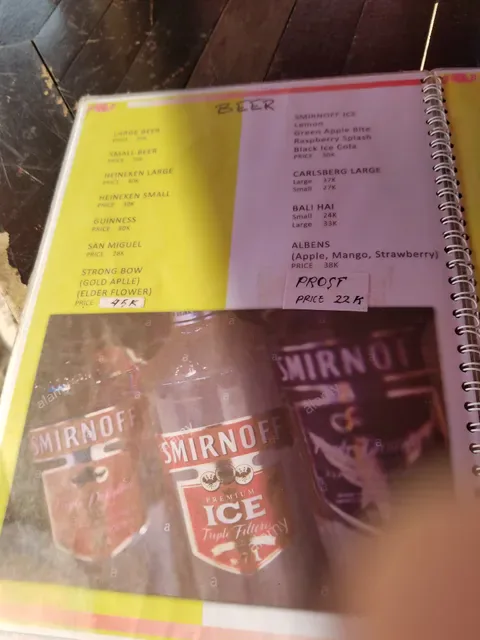 BEER
LARGE BEER
PRICE
SMALL BEER
PRICE
HEINEKEN LARGE
PRICE
HEINEKEN SMALL
PRICE
GUINNESS
PRICE 40K
SAN MIGUEL
PRICE 28K
STRONG BOW
(GOLD APLLE)
(ELDER FLOWER)
PRICE 45K
SMIRNOFF ICE
Lemon
Green Apple Bite
Raspberry Splash
Black Ice Cola
PRICE
CARLSBERG LARGE
Large 37K
Small 27K
BALI HAI
Small 24K
Large 33K
ALBENS
(Apple, Mango, Strawberry)
PRICE 38K
PROST
PRICE 22K
SMIRNOFF
SMIRNOFF
PREMIUM
ICE
Triple Filtered
SMIRNOFF
alamy